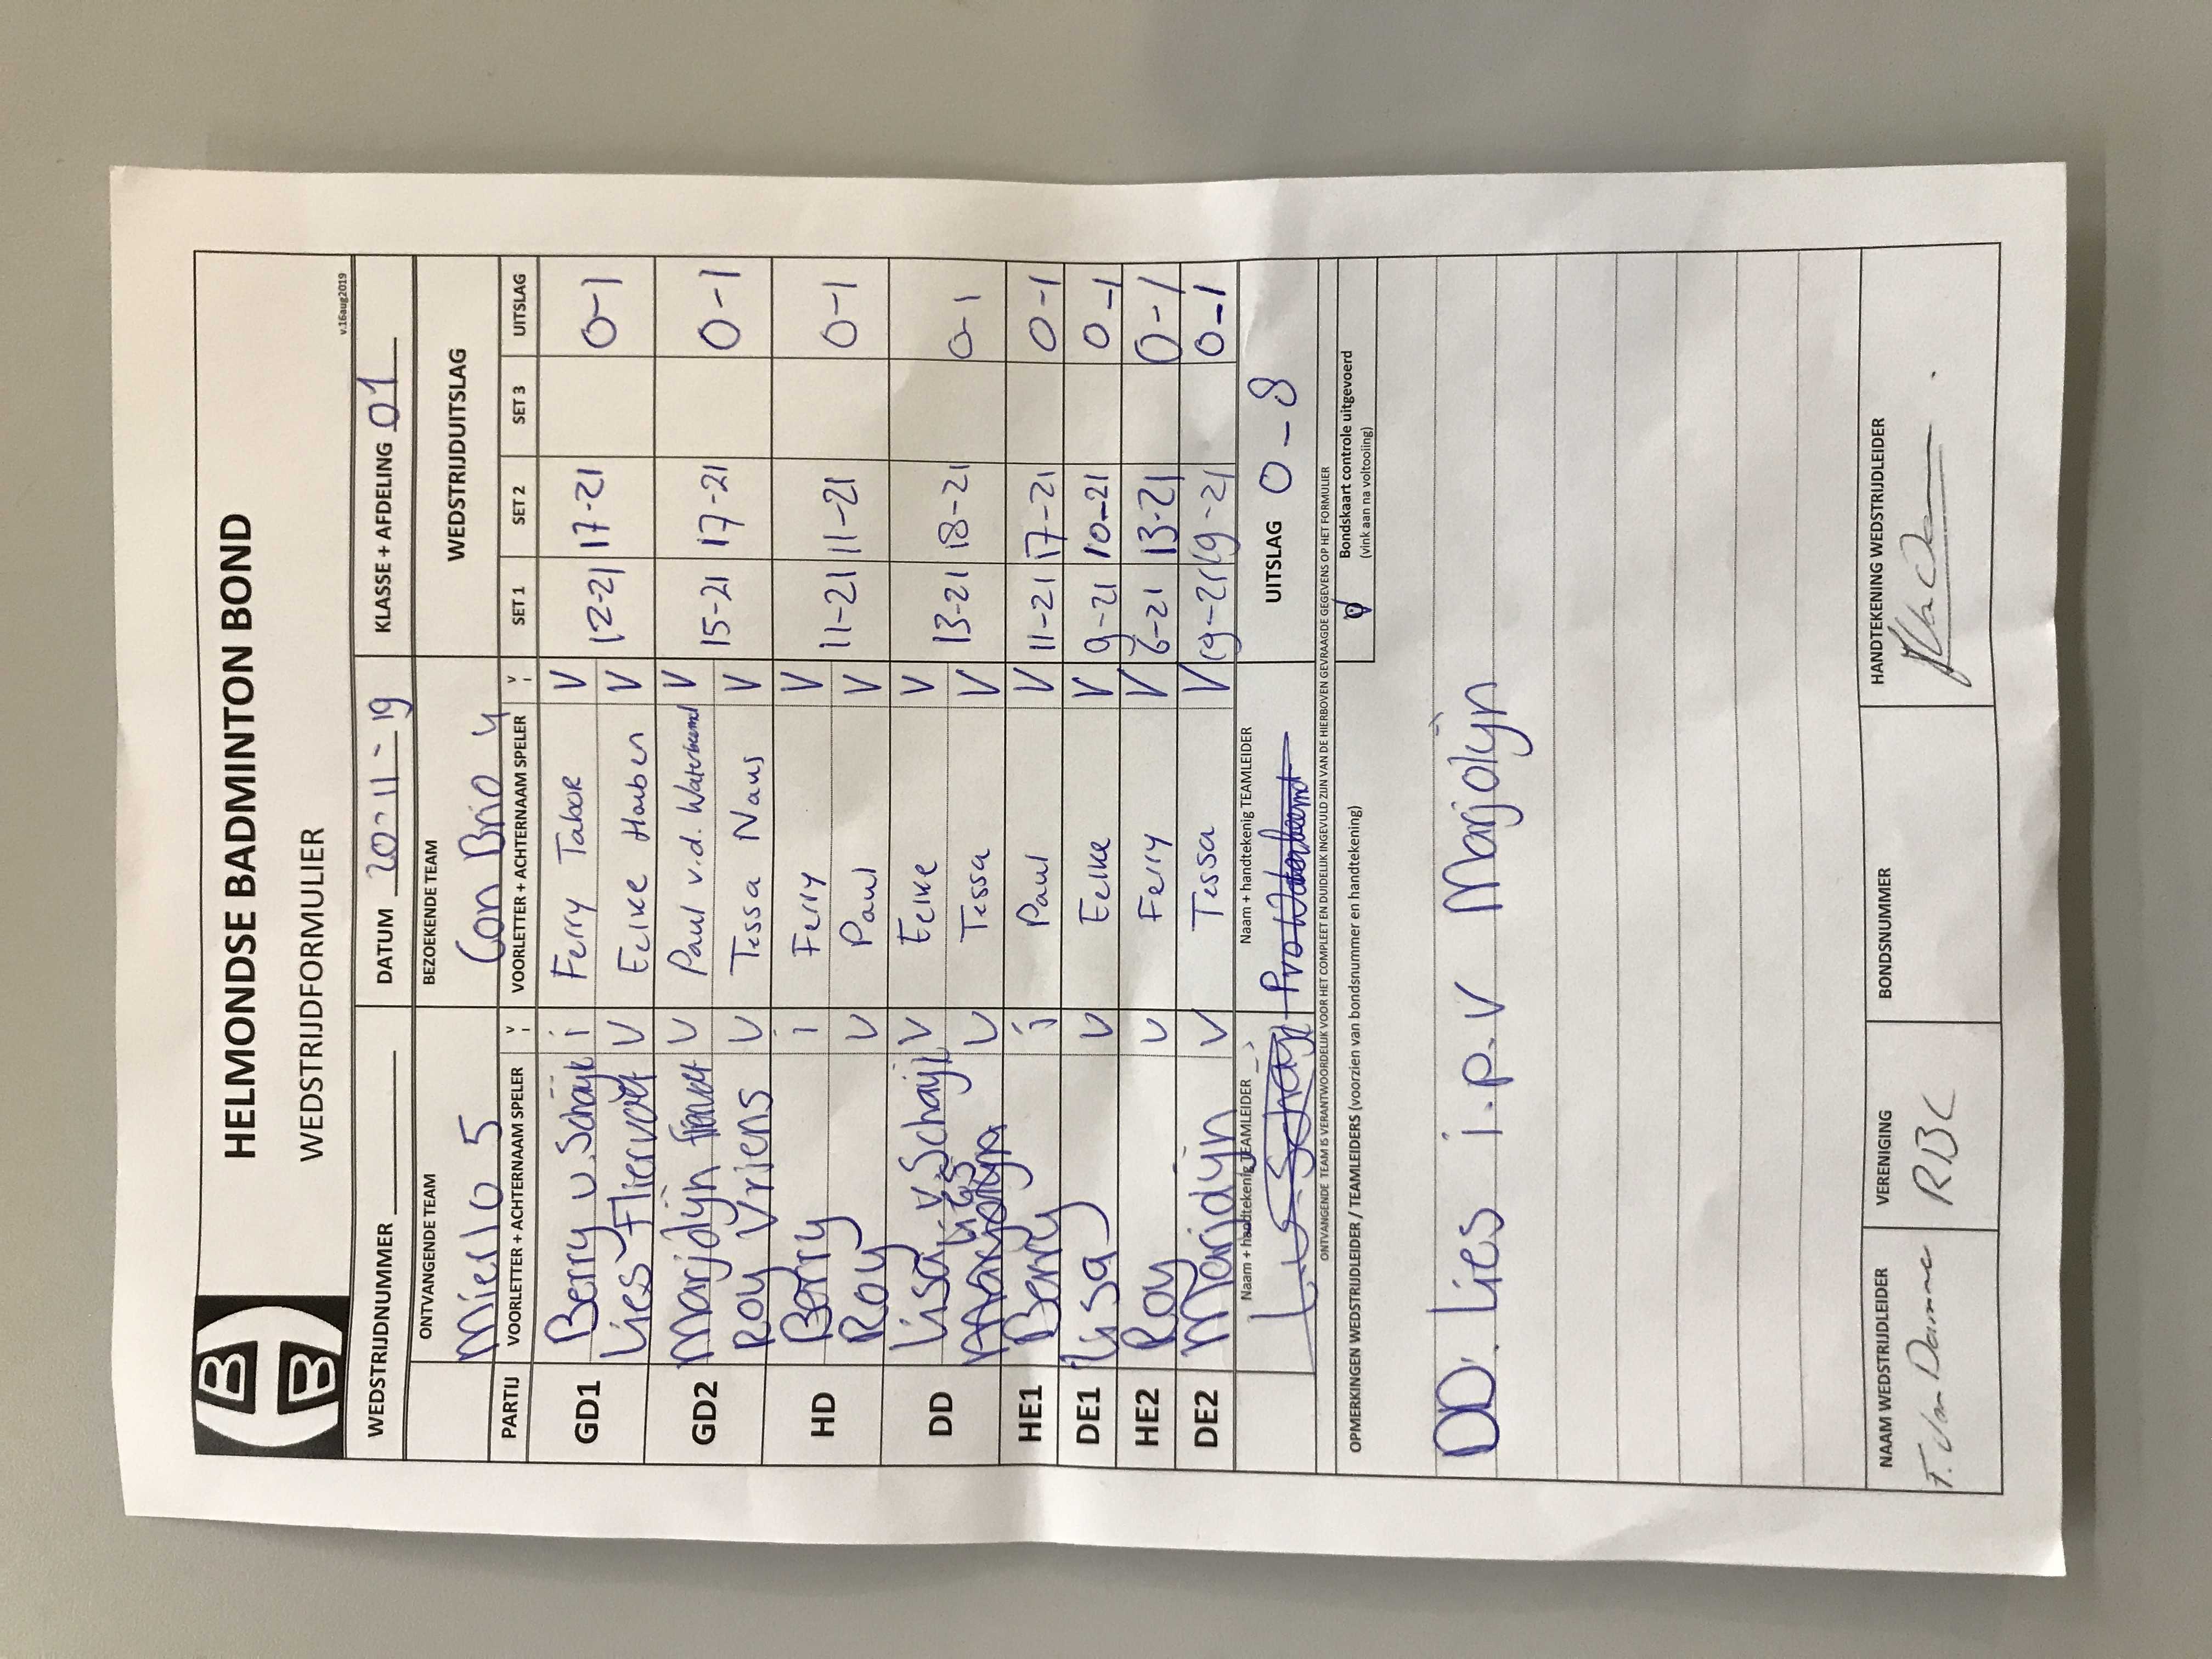 HELMONDSE BADMINTON BOND
WEDSTRIJDFORMULIER
v.16aug2019
WEDSTRIJDNUMMER DATUM 20-11-19 KLASSE + AFDELING 01
ONTVANGENDE TEAM BEZOEKENDE TEAM WEDSTRIJDUITSLAG
Mierlo 5 Con Brio 4
PARTIJ VOORLETTER + ACHTERNAAM SPELER V VOORLETTER + ACHTERNAAM SPELER V SET 1 SET 2 SET 3 UITSLAG
GD1 Berry v. Schaijk i Ferry Tabor V
Lies Fliervoet V Eelke Houben V 12-21 17-21 0-1
GD2 Marjolijn Fliervoet V Paul v.d. Waterbeemd V
Roy Vriens V Tessa Naus V 15-21 17-21 0-1
HD Berry i Ferry V
Roy V Paul V 11-21 11-21 0-1
DD Lisa v. Schaijk V Eelke V
Lies Marjolijn V Tessa V 13-21 18-21 0-1
HE1 Berry i Paul V 11-21 17-21 0-1
DE1 Lisa V Eelke V 9-21 10-21 0-1
HE2 Roy V Ferry V 6-21 13-21 0-1
DE2 Marjolijn V Tessa V 19-21 19-21 0-1
Naam + handtekenig TEAMLEIDER Naam + handtekenig TEAMLEIDER UITSLAG 0-8
ONTVANGENDE TEAM IS VERANTWOORDELIJK VOOR HET COMPLEET EN DUIDELIJK INGEVULD ZIJN VAN DE HIERBOVEN GEVRAAGDE GEGEVENS OP HET FORMULIER
OPMERKINGEN WEDSTRIJDLEIDER / TEAMLEIDERS (voorzien van bondsnummer en handtekening) V Bondskaart controle uitgevoerd
(vink aan na voltooiing)
DD: Lies i.p.v Marjolijn
NAAM WEDSTRIJDLEIDER VERENIGING BONDSNUMMER HANDTEKENING WEDSTRIJDLEIDER
F. Van Damme RBC